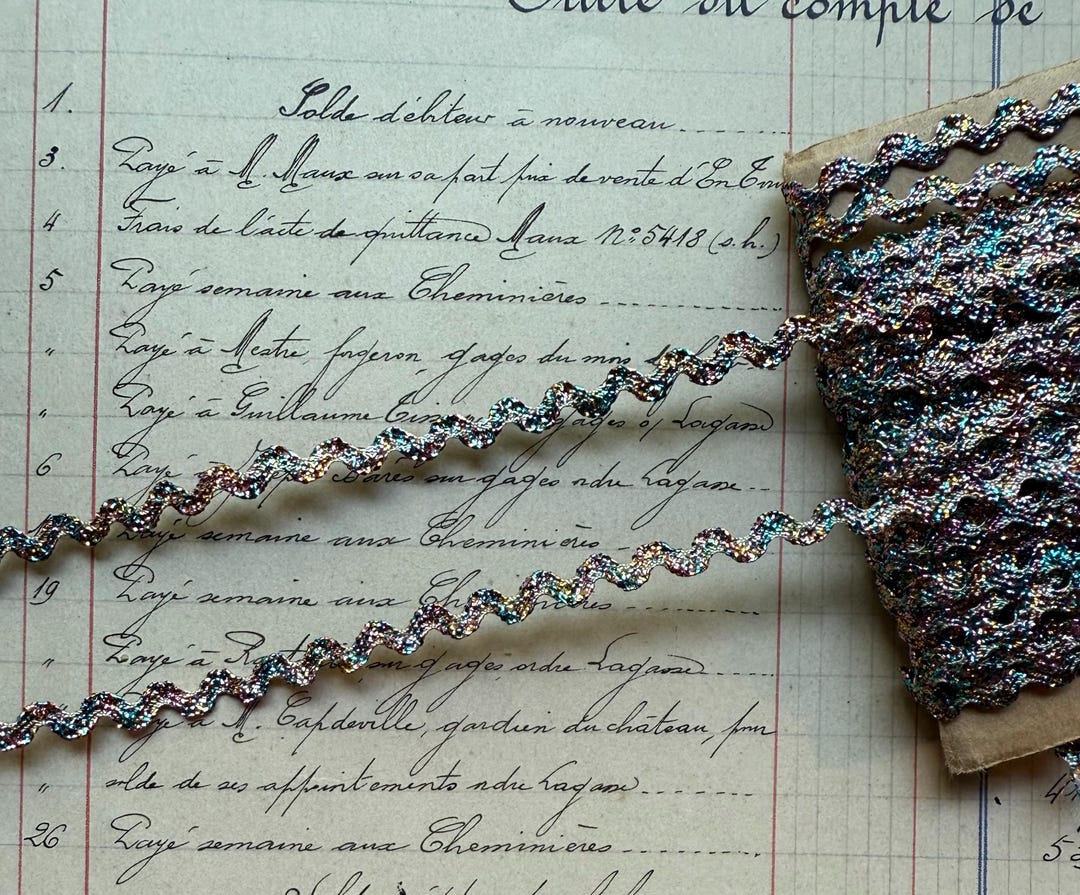 Suite du compte de
1. Solde débiteur à nouveau
3. Payé à M. Maux sur sa part prix de vente d'En
4 Frais de l'acte de quittance Maux N° 5418 (s.h.)
5 Payé semaine aux Cheminières
" Payé à Mestre forgeron, gages du mois
" Payé à Guillaume gages o/ Lagasse
6 Payé sur gages ordre Lagasse
Payé semaine aux Cheminières
19 Payé semaine aux
" Payé à sur gages ordre Lagasse
à M. Capdeville, gardien du château, pour
" solde de ses appointements ordre Lagasse
26 Payé semaine aux Cheminières